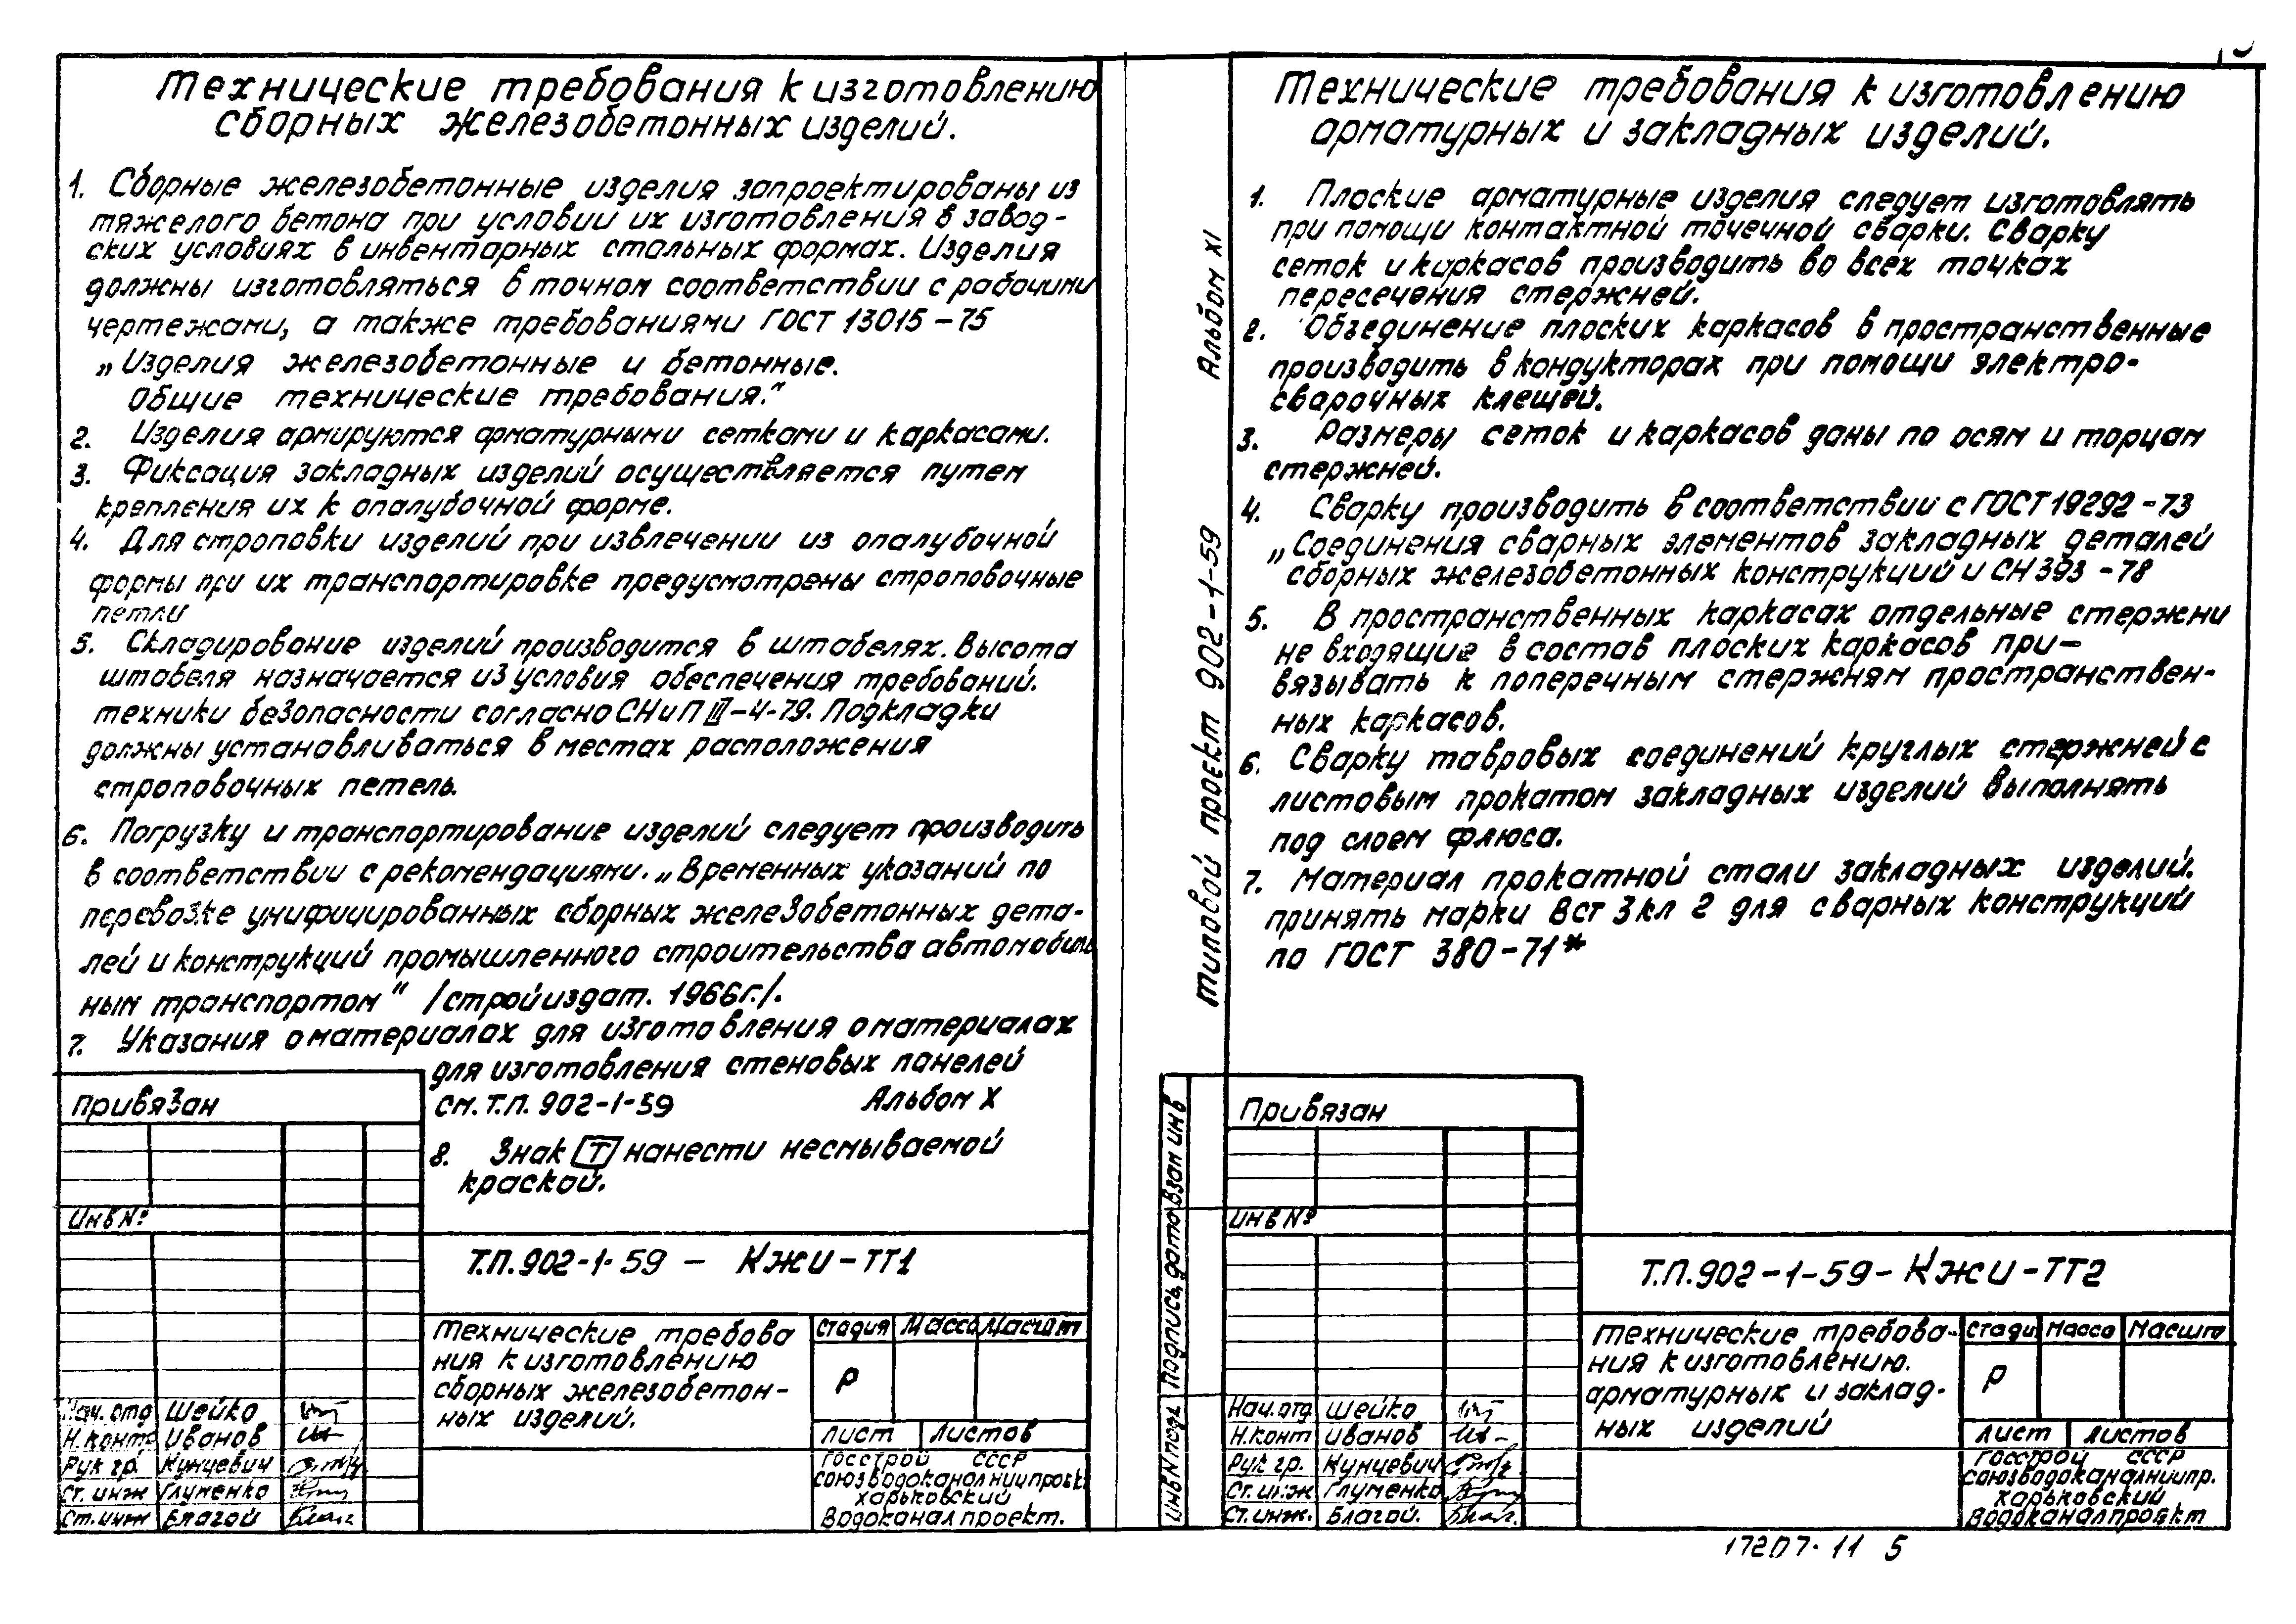 Технические требования к изготовлению
сборных железобетонных изделий.
1. Сборные железобетонные изделия запроектированы из
тяжелого бетона при условии их изготовления в завод-
ских условиях в инвентарных стальных формах. Изделия
должны изготовляться в точном соответствии с рабочими
чертежами, а также требованиями ГОСТ 13015-75
„Изделия железобетонные и бетонные.
Общие технические требования."
2. Изделия армируются арматурными сетками и каркасами.
3. Фиксация закладных изделий осуществляется путем
крепления их к опалубочной форме.
4. Для строповки изделий при извлечении из опалубочной
формы при их транспортировке предусмотрены строповочные
петли
5. Складирование изделий производится в штабелях. Высота
штабеля назначается из условия обеспечения требований.
техники безопасности согласно СНиП III-4-79. Подкладки
должны устанавливаться в местах расположения
строповочных петель.
6. Погрузку и транспортирование изделий следует производить
в соответствии с рекомендациями. „Временных указаний по
перевозке унифицированных сборных железобетонных дета-
лей и конструкций промышленного строительства автомобиль
ным транспортом" /стройиздат. 1966г./.
7. Указания о материалах для изготовления о материалах
для изготовления стеновых панелей
см. Т.П. 902-1-59 Альбом X
8. Знак Т нанести несмываемой
краской.
Привязан
Инв №
Т.П. 902-1-59 - КЖИ-ТТ1
Технические требова
ния к изготовлению
сборных железобетон-
ных изделий.
Стадия Масса Масшт
Р
Лист Листов
Госстрой СССР
Союзводоканалниипроект
Харьковский
Водоканалпроект.
Нач. отд Шейко
Н. конт. Иванов
Рук гр. Кунцевич
Ст. инж Глуменко
Ст. инж Благой
Альбом XI
Типовой проект 902-1-59
Технические требования к изготовлению
арматурных и закладных изделий.
1. Плоские арматурные изделия следует изготовлять
при помощи контактной точечной сварки. Сварку
сеток и каркасов производить во всех точках
пересечения стержней.
2. Объединение плоских каркасов в пространственные
производить в кондукторах при помощи электро-
сварочных клещей.
3. Размеры сеток и каркасов даны по осям и торцам
стержней.
4. Сварку производить в соответствии с ГОСТ 19292-73
„Соединения сварных элементов закладных деталей
сборных железобетонных конструкций и СН 393-78
5. В пространственных каркасах отдельные стержни
не входящие в состав плоских каркасов при-
вязывать к поперечным стержням пространствен-
ных каркасов.
6. Сварку тавровых соединений круглых стержней с
листовым прокатом закладных изделий выполнять
под слоем флюса.
7. Материал прокатной стали закладных изделий.
принять марки ВСт 3кл 2 для сварных конструкций
по ГОСТ 380-71*
Привязан
Инв №
Инв N подл Подпись, дата Взам инв
Т.П. 902-1-59-КЖИ-ТТ2
Технические требова-
ния к изготовлению.
арматурных и заклад-
ных изделий
Стади Масса Масшта
Р
Лист Листов
Госстрой СССР
Союзводоканалниипр.
Харьковский
Водоканалпроект
Нач. отд Шейко
Н. конт Иванов
Рук гр. Кунцевич
Ст. инж Глуменко
Ст. инж. Благой.
17207-11 5